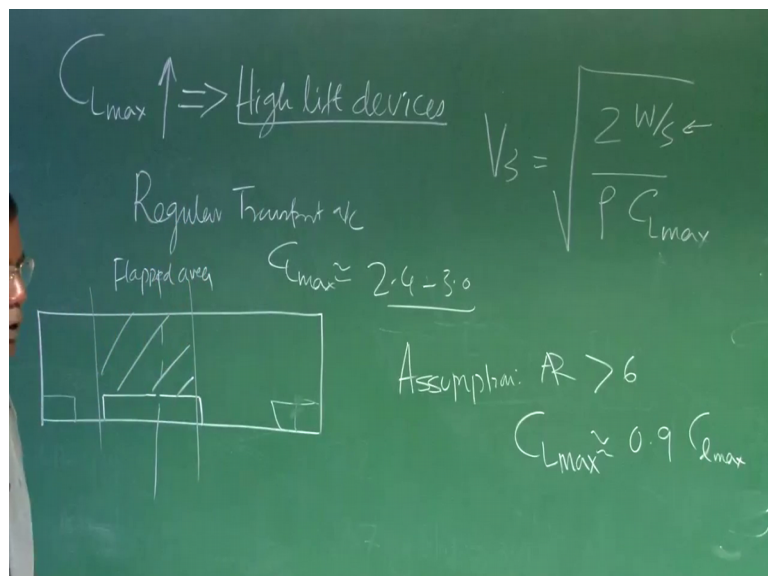 C_Lmax ↑ => High lift devices
V_s = √(2 W/s ← / ρ C_Lmax)
Regular Transport a/c
C_Lmax ≈ 2.4 - 3.0
Flapped area
Assumption: AR > 6
C_Lmax ≈ 0.9 C_lmax